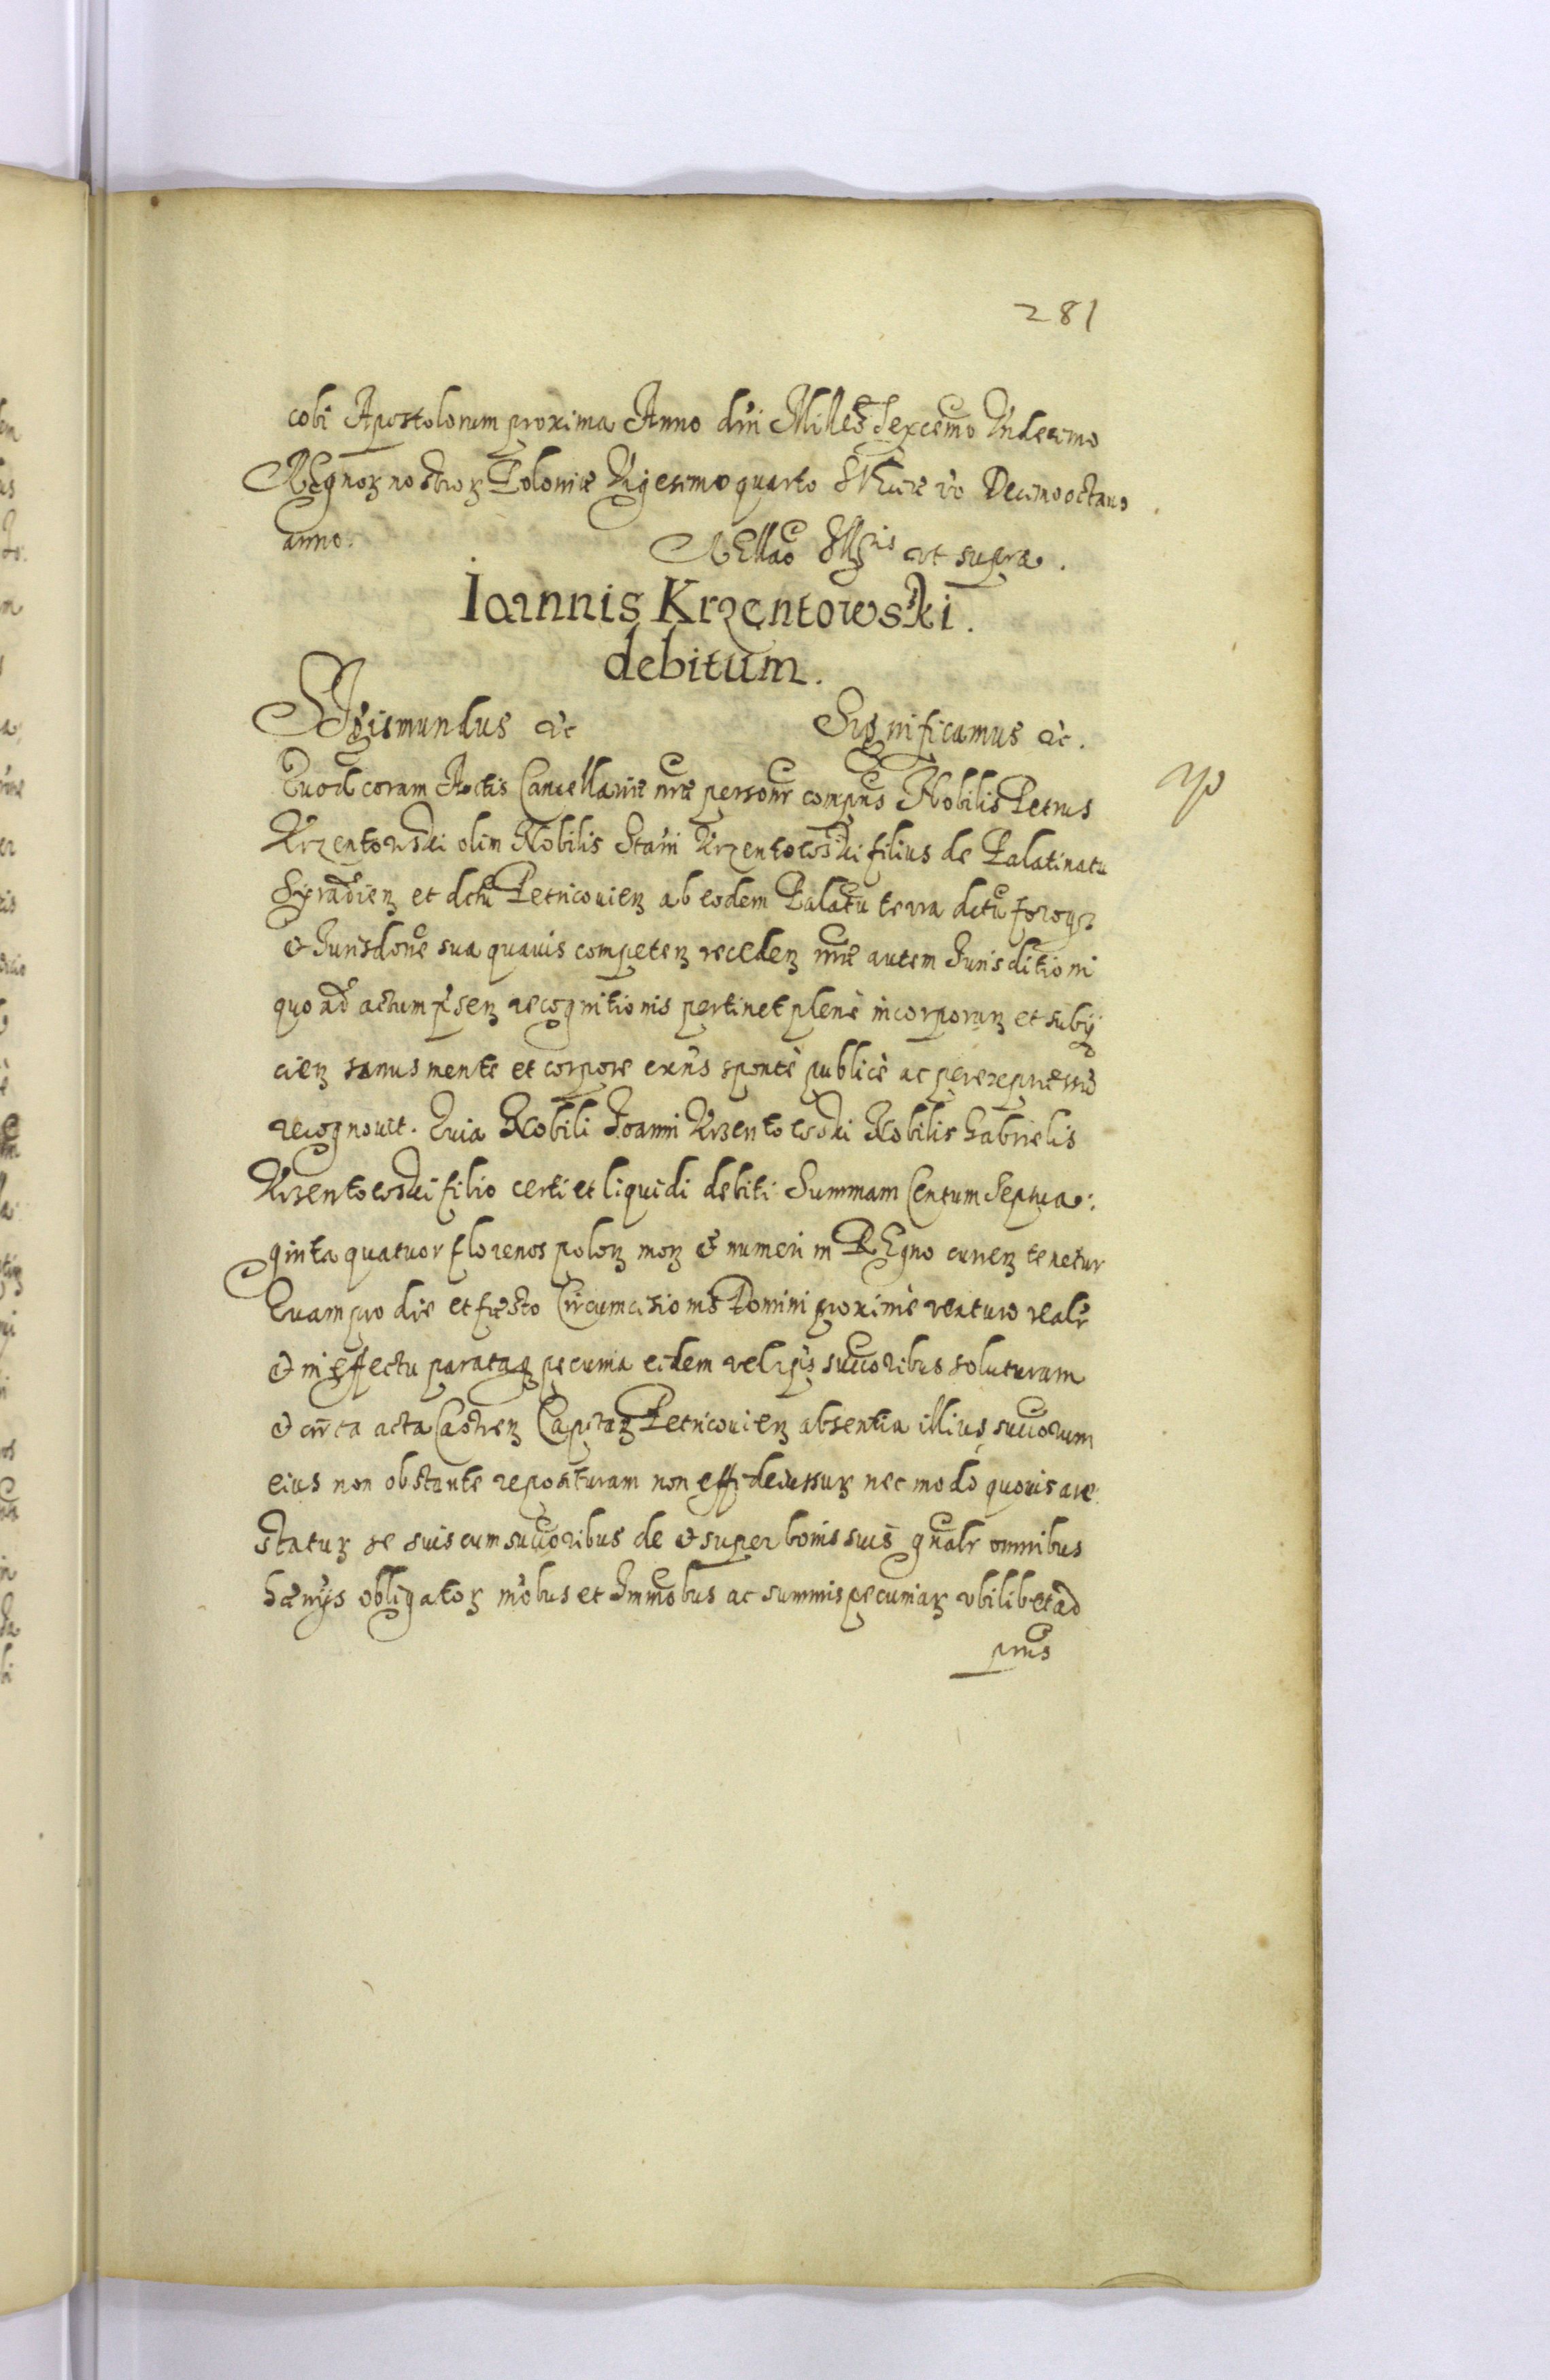 281
cobi Apostolorum proxima Anno dni Milleo Sexcemo Undecimo
REgnorz nostrorz Poloniæ Vigesimoquarto SVeciæ vo Decimooctavo
anno. RElао Ill ut supra.
Ioannis Krzentowski.
debitum.
SIgismundus &c Significamus &c.
Quod coram Actis Cancellariæ nræ personr compns Nobilis Petrus
Krzentowski olim Nobilis Stani Krzentowski filius de Palatinatu
Syradienz et dctu Petricovienz ab eodem Palatu terra dctu foroqz
& Jurisdone sua quavis competenz recedenz nræ autem Jurisditioni
quo ad actum psenz recognitionis pertinet plenè incorporanz et subij
cienz sanus mente et corpore exns spontè publicè ac per expressū
recognovit. Quia Nobili Joanni Krzentowski Nobilis Gabrielis
Krzentowski filio certi et liquidi debiti Summam Centum Septua:
ginta quatuor florenos polonz monz & numeri in REgno currenz tenetur
Quam pro die et festo Circumcisionis Domini proximè venturo realr
& in effectu parataqz pecunia eidem vel ipis succoribus soluturam
& circa acta Castrenz Capitanz Petricovienz absentia illius, succorum
eius non obstante reposituram non effideiussurz nec modò quovis are:
staturz se suis cum succoribus de & super bonis suis gnalr omnibus
hænijs obligatorz mobus et Immobus ac summis pecuniarz ubilibet ad
pnns